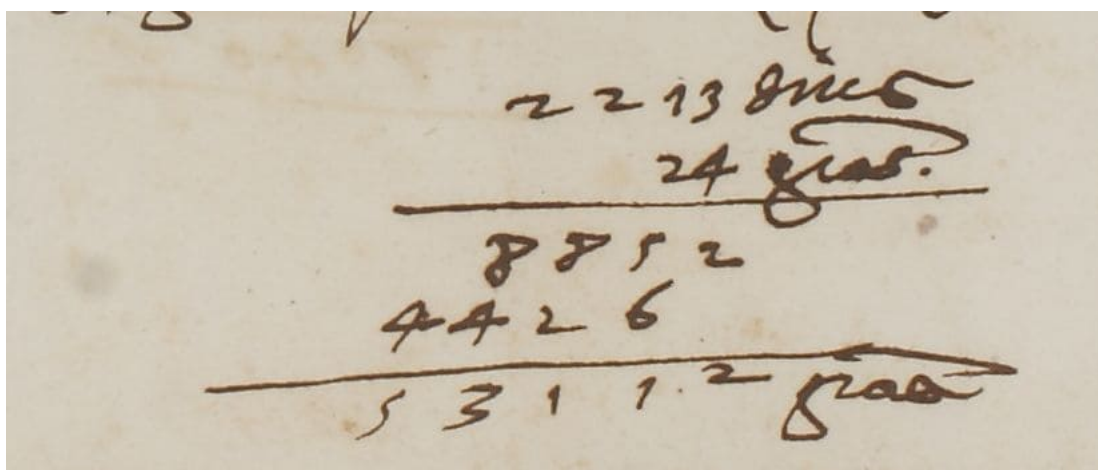 2213 dines
24 gras.
8852
4426
53112 graos